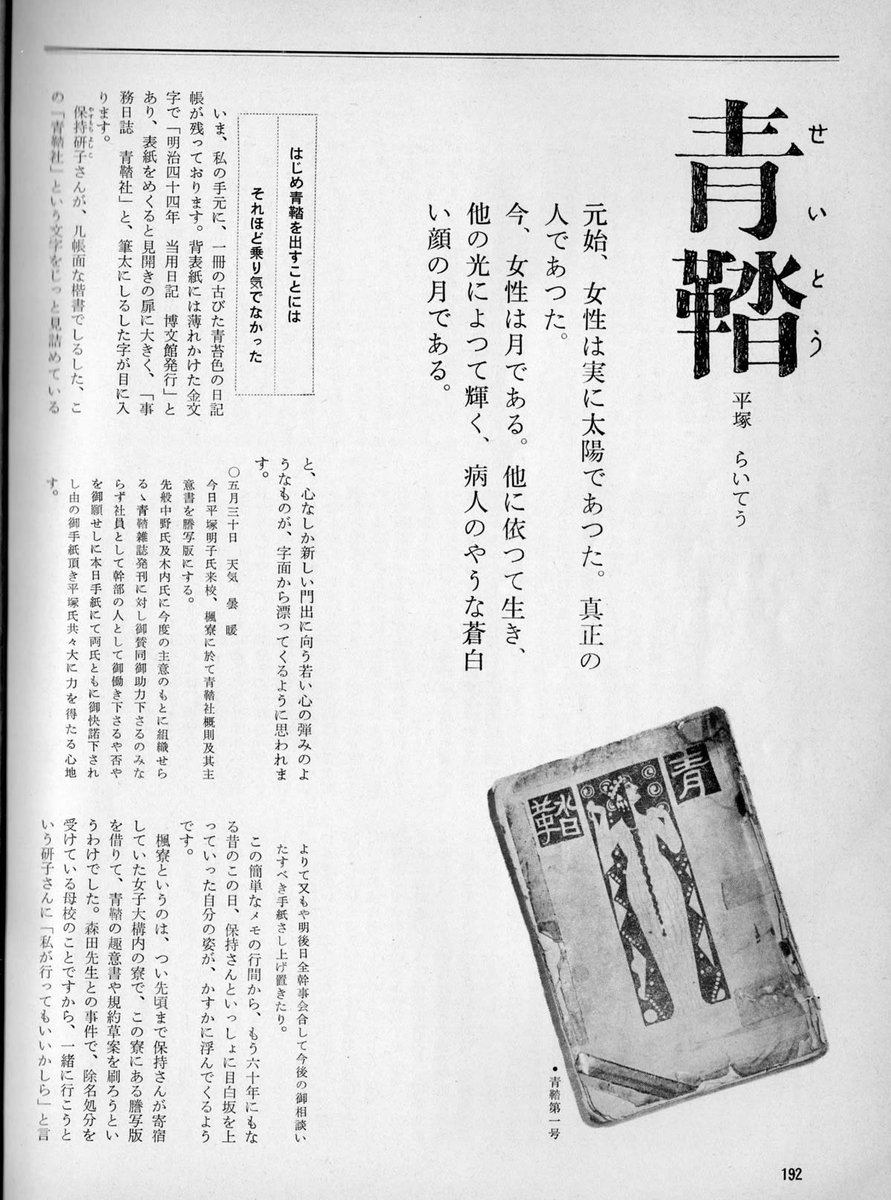 青鞜
せいとう
平塚 らいてう
元始、女性は実に太陽であつた。真正の
人であつた。
今、女性は月である。他に依つて生き、
他の光によつて輝く、病人のやうな蒼白
い顔の月である。
はじめ青鞜を出すことには
それほど乗り気でなかった
いま、私の手元に、一冊の古びた青苔色の日記
帳が残っております。背表紙には薄れかけた金文
字で「明治四十四年 当用日記 博文館発行」と
あり、表紙をめくると見開きの扉に大きく、「事
務日誌 青鞜社」と、筆太にしるした字が目に入
ります。
保持研子さんが、几帳面な楷書でしるした、こ
やすもちよしこ
の「青鞜社」という文字をじっと見詰めている
と、心なしか新しい門出に向う若い心の弾みのよ
うなものが、字面から漂ってくるように思われま
す。
〇五月三十日 天気 曇 暖
今日平塚明子氏来校、楓寮に於て青鞜社概則及其主
意書を謄写版にする。
先般中野氏及木内氏に今度の主意のもとに組織せら
るゝ青鞜雑誌発刊に対し御賛同御助力下さるのみな
らず社員として幹部の人として御働き下さるや否や
を御願せしに本日手紙にて両氏ともに御快諾下され
し由の御手紙頂き平塚氏共々大に力を得たる心地
す。
よりて又もや明後日全幹事会合して今後の御相談い
たすべき手紙さし上げ置きたり。
この簡単なメモの行間から、もう六十年にもな
る昔のこの日、保持さんといっしょに目白坂を上
っていった自分の姿が、かすかに浮んでくるよう
です。
楓寮というのは、つい先頃まで保持さんが寄宿
していた女子大構内の寮で、この寮にある謄写版
を借りて、青鞜の趣意書や規約草案を刷ろうとい
うわけでした。森田先生との事件で、除名処分を
受けている母校のことですから、一緒に行こうと
いう研子さんに「私が行ってもいいかしら」と言
青鞜
・青鞜第一号
192